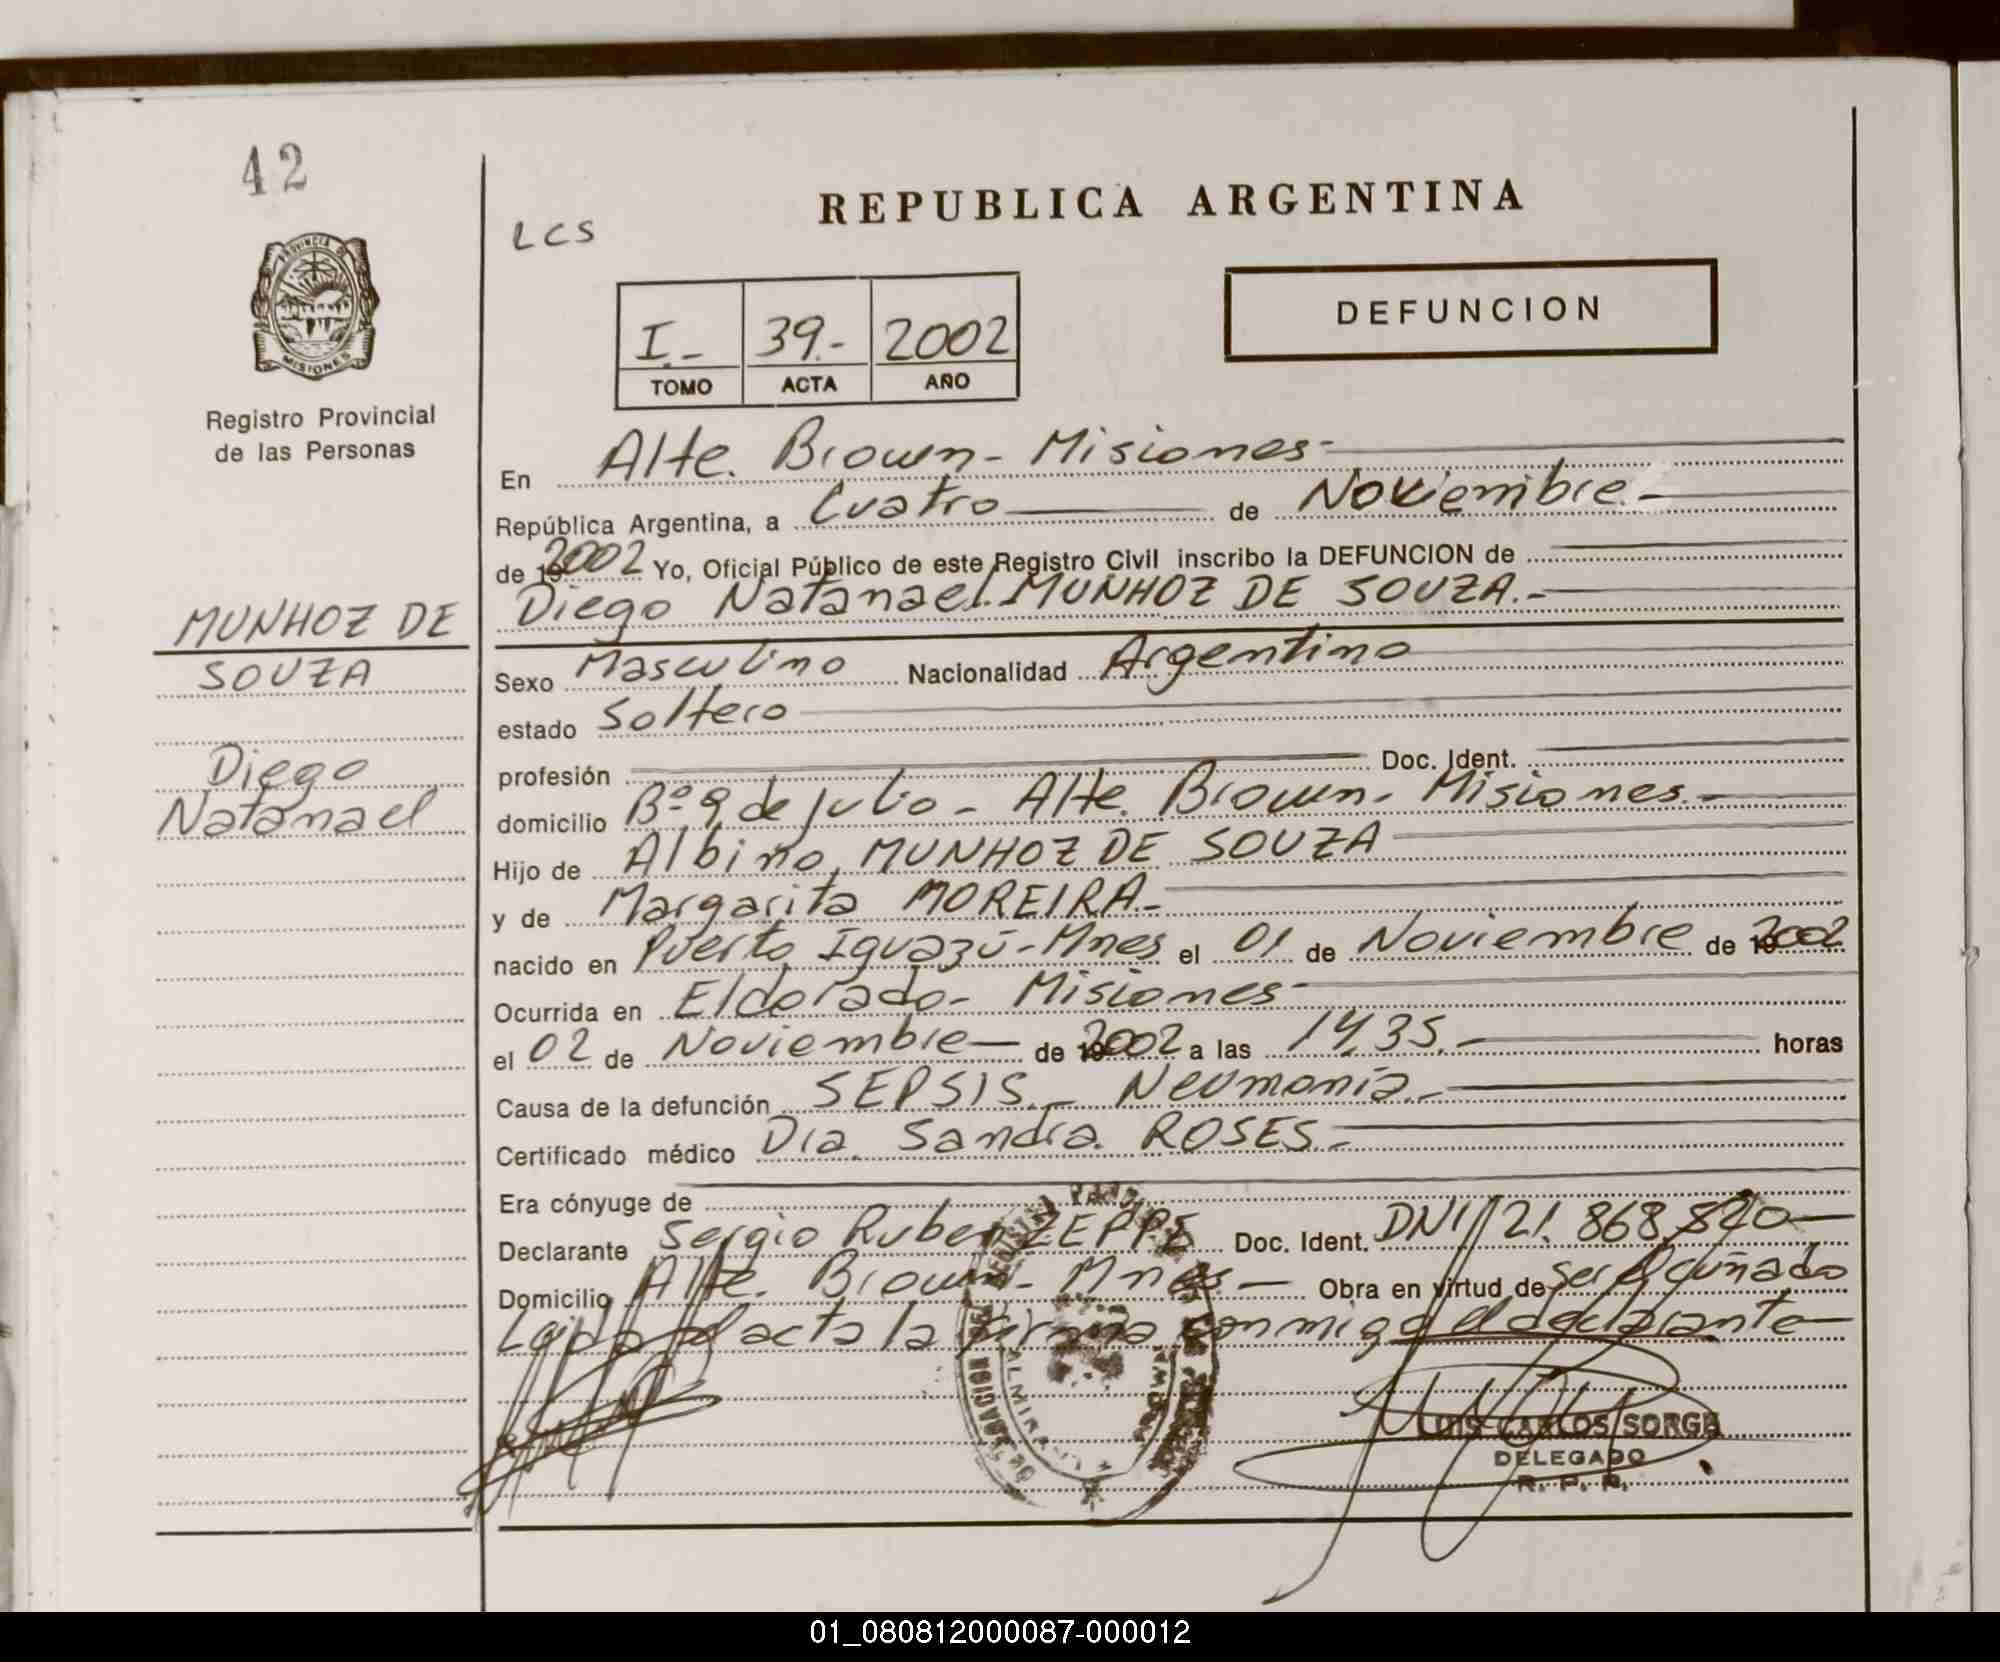 42
PROVINCIA DE
MISIONES
Registro Provincial
de las Personas
MUNHOZ DE
SOUZA
Diego
Natanael
REPUBLICA ARGENTINA
LCS
I.- 39.- 2002
TOMO ACTA AÑO
DEFUNCION
En Alte. Brown - Misiones-
República Argentina, a Cuatro de Noviembre.-
de 2002 Yo, Oficial Público de este Registro Civil inscribo la DEFUNCION de
Diego Natanael MUNHOZ DE SOUZA.-
Sexo Masculino Nacionalidad Argentino
estado Soltero
profesión Doc. Ident.
domicilio Bº 9 de julio - Alte. Brown - Misiones.-
Hijo de Albino MUNHOZ DE SOUZA
y de Margarita MOREIRA-
nacido en Puerto Iguazú - Mnes el 01 de Noviembre de 2002
Ocurrida en Eldorado - Misiones-
el 02 de Noviembre de 2002 a las 14,35.- horas
Causa de la defunción SEPSIS - Neumonía.-
Certificado médico Dra. Sandra ROSES.-
Era cónyuge de
Declarante Sergio Ruben ZEPPE Doc. Ident. DNI 21.868.820
Domicilio Alte. Brown - Mnes.- Obra en virtud de ser el cuñado
Leida el acta la firma conmigo el declarante
LUIS CARLOS SORGE
DELEGADO
R. P. P.
01_080812000087-000012